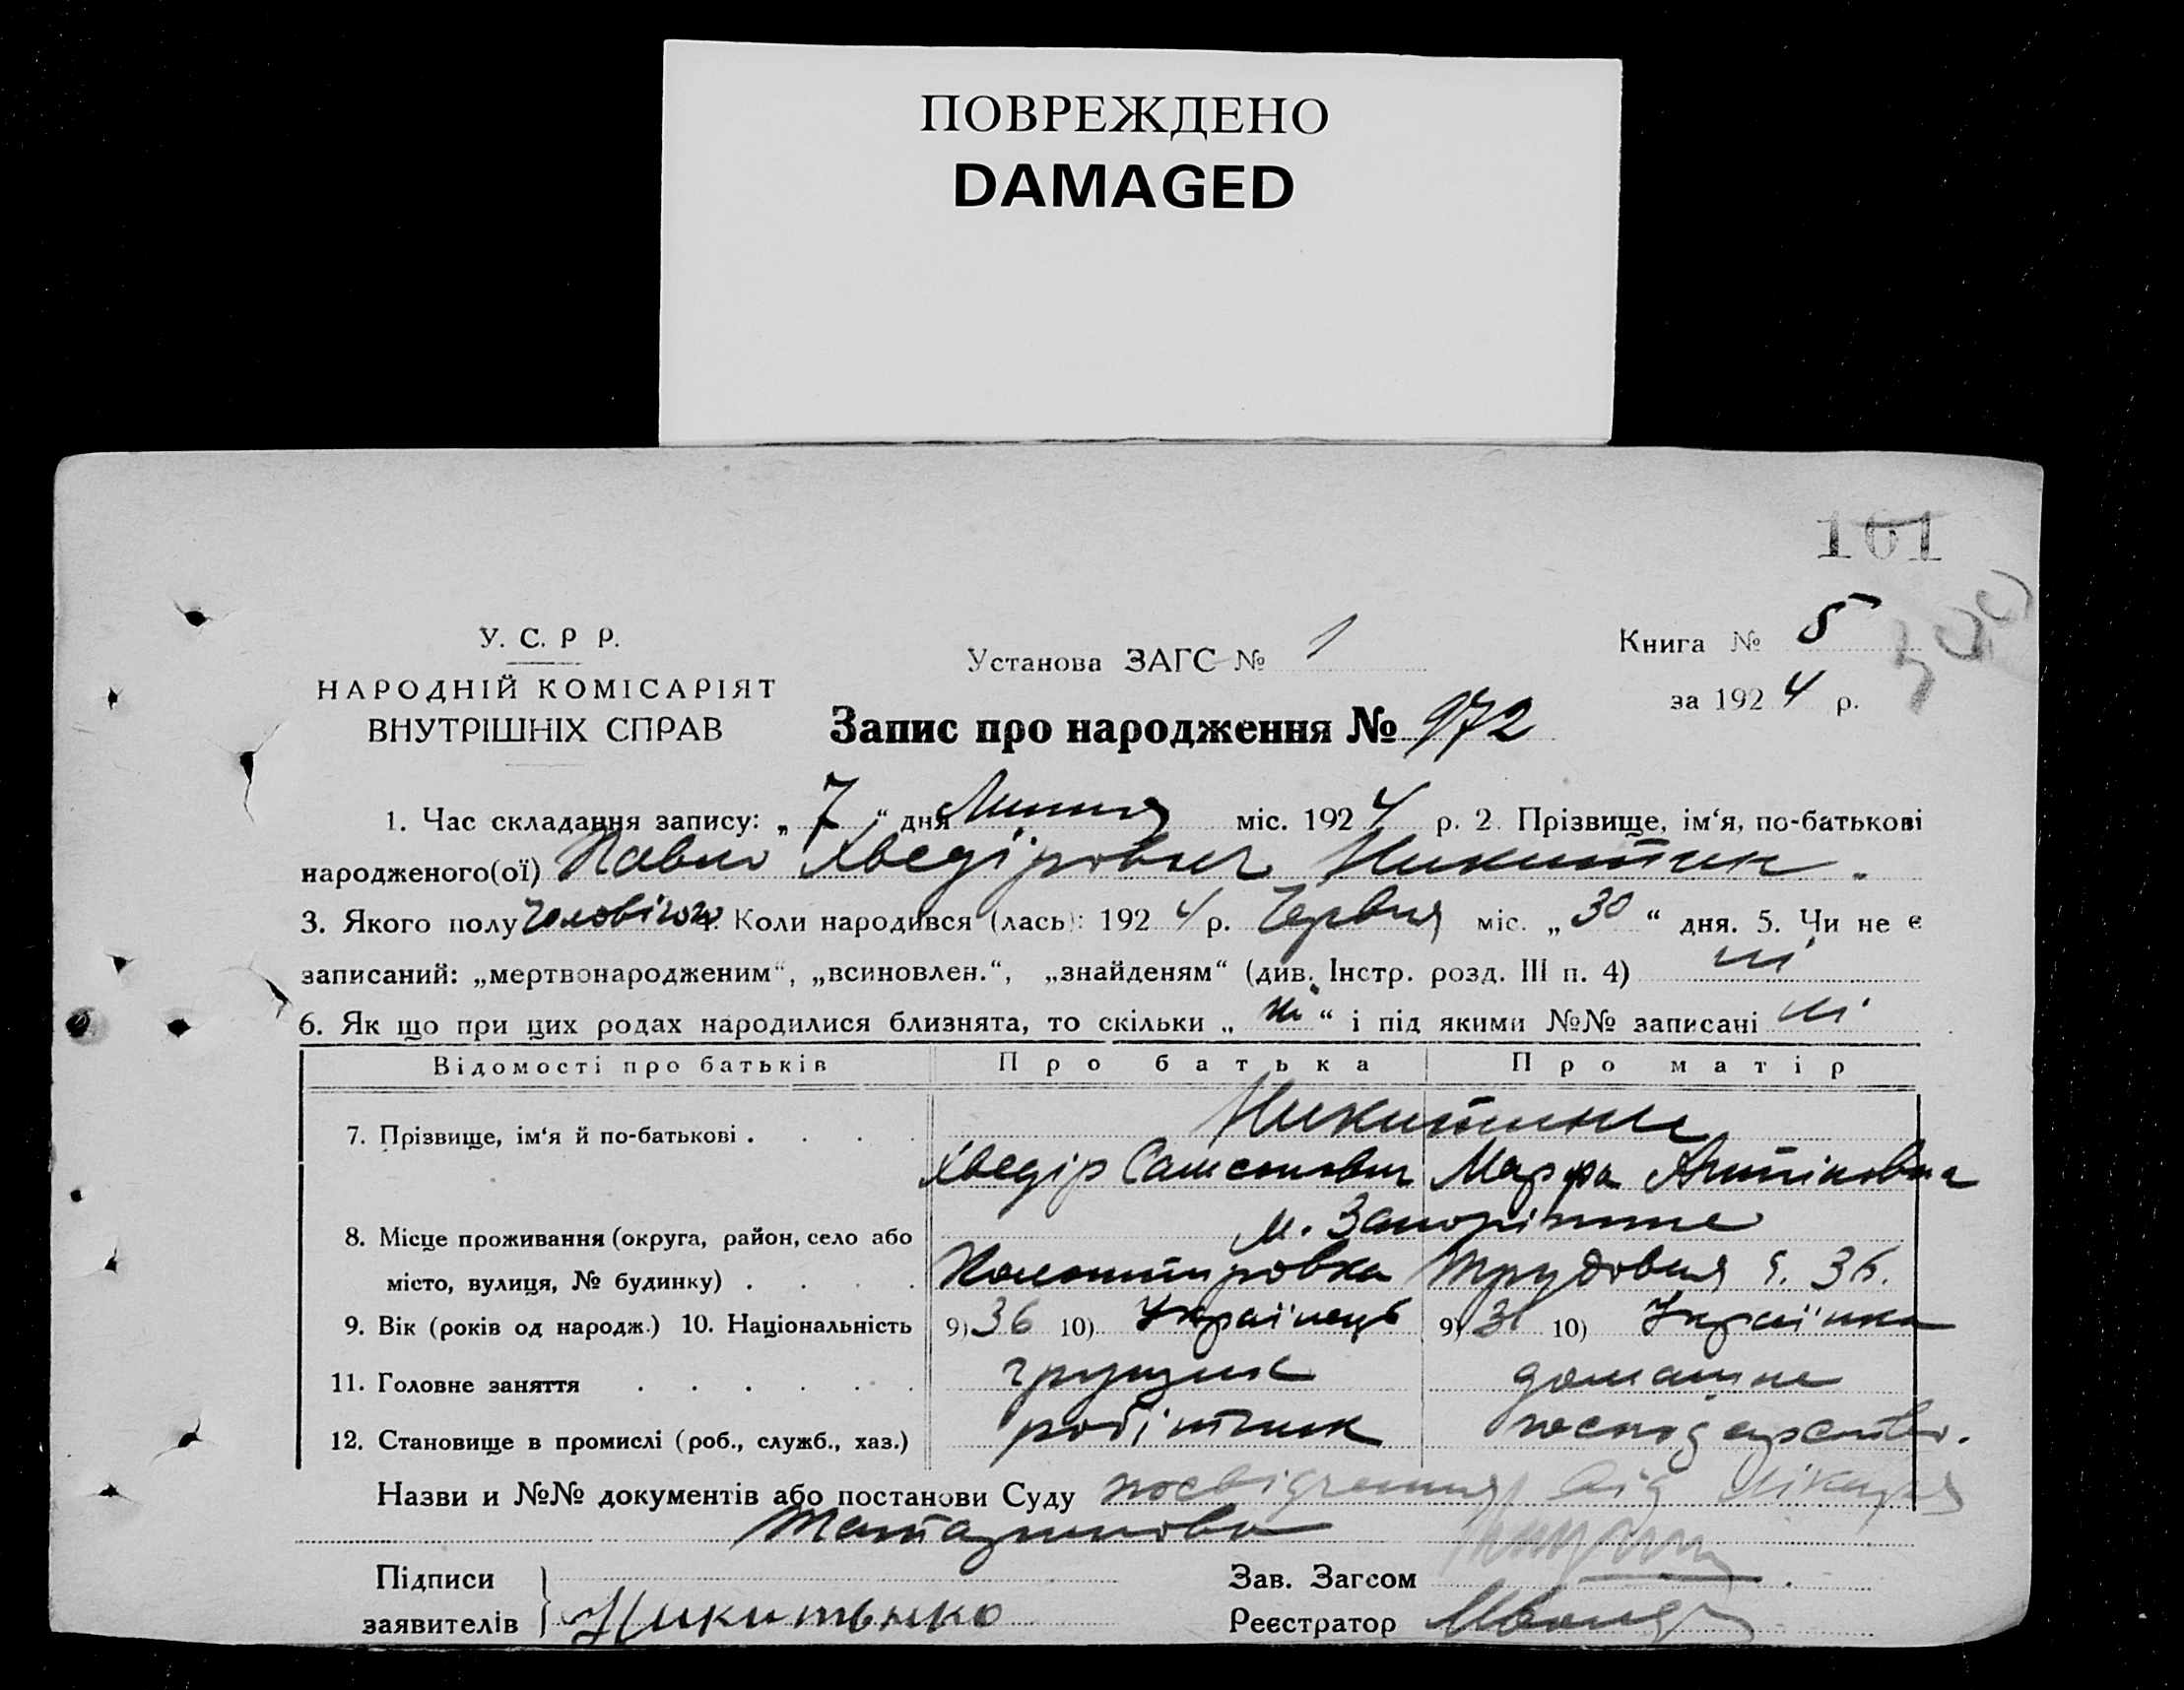 ПОВРЕЖДЕНО
DAMAGED
101
300
У. С. Р Р.
НАРОДНІЙ КОМІСАРІЯТ
ВНУТРІШНІХ СПРАВ
Установа ЗАГС № 1
Книга № 5
за 1924 р.
Запис про народження № 972
1. Час складання запису: „7“ дня Липня міс. 1924 р. 2. Прізвище, ім‘я, по-батькові
народженого(ої) Павло Хведірович Никитчин.
3. Якого полу Чоловічого 4. Коли народився (лась): 1924 р. Червня міс. „30“ дня. 5. Чи не є
записаний: „мертвонародженим“, „всиновлен.“, „знайденям“ (див. Інстр. розд. III п. 4) ні
6. Як що при цих родах народилися близнята, то скільки „ні“ і під якими №№ записані ні
Відомості про батьків Про батька Про матір
7. Прізвище, ім‘я й по-батькові . . . .
Хведір Самсонович Марфа
8. Місце проживання (округа, район, село або м. Запоріжжє
місто, вулиця, № будинку) . . . . Трудовая 36.
9. Вік (років од народж.) 10. Національність 9) 36 10) Українець 9) 31 10) Українка
11. Головне заняття . . . . . . грущик домашнє
12. Становище в промислі (роб., служб., хаз.) робітник господарство.
Назви и №№ документів або постанови Суду посвідчення від лікаря
Підписи
заявителів Никитенко
Зав. Загсом
Реєстратор